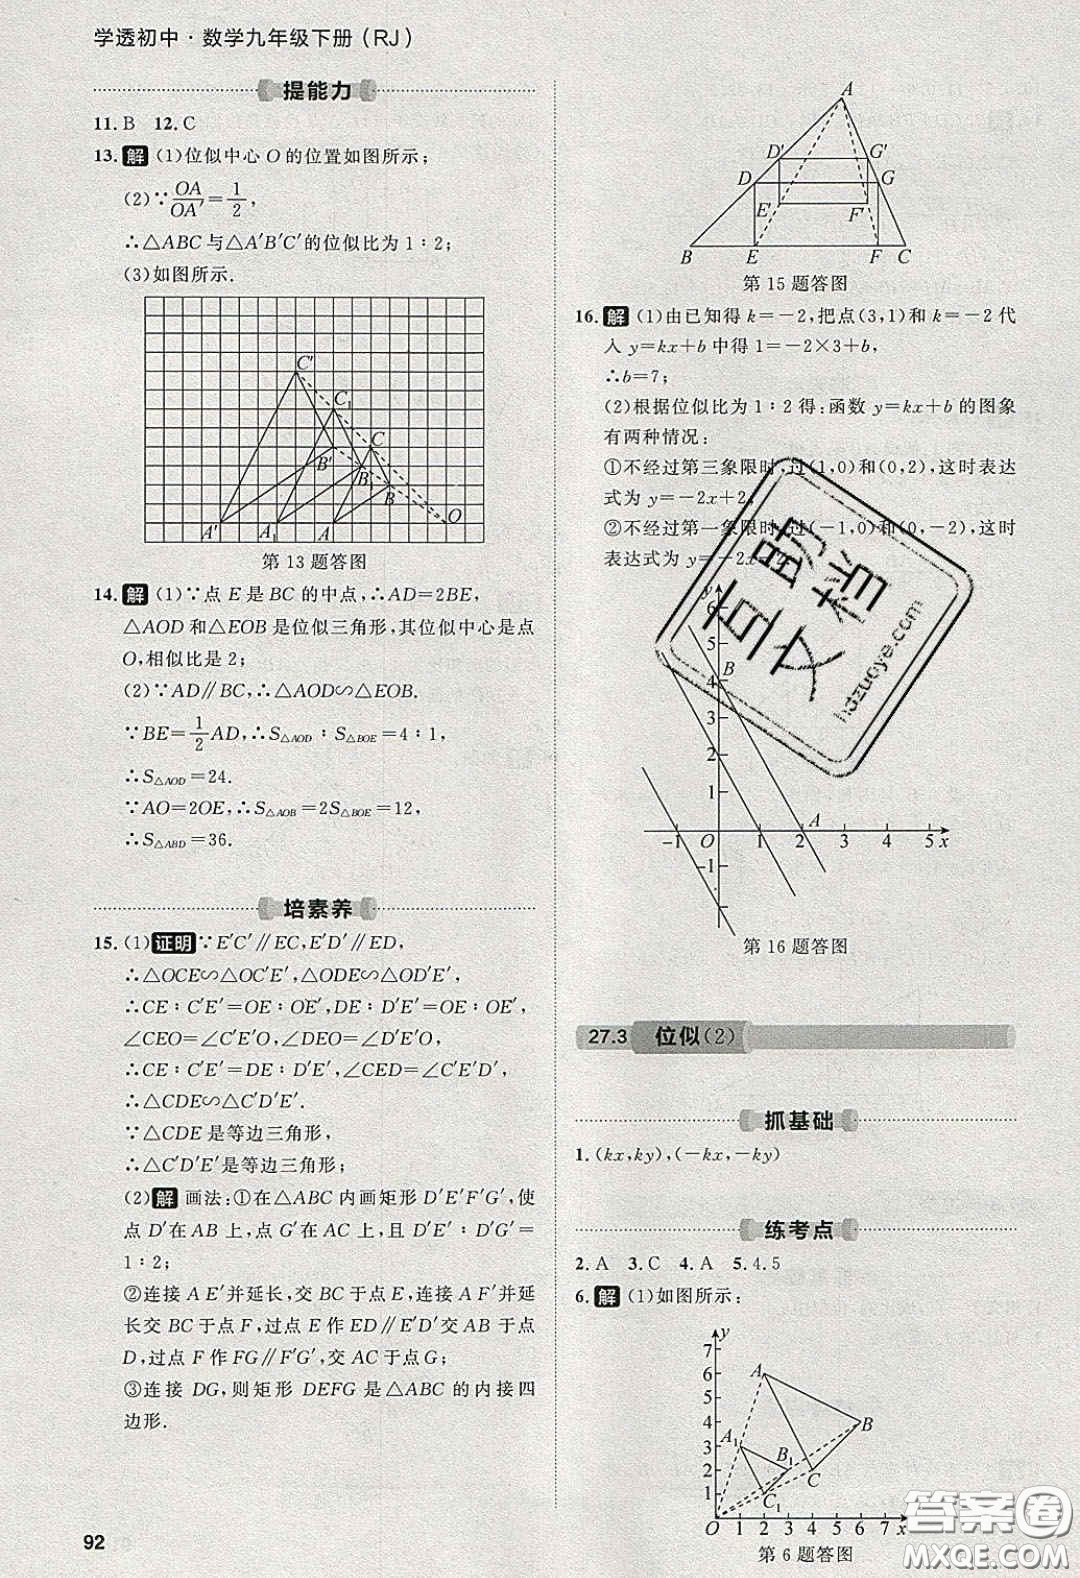 学透初中·数学九年级下册(RJ)
提能力
11. B 12. C
13. 解 (1)位似中心 O 的位置如图所示;
(2)∵OA/OA′=1/2,
∴△ABC与△A′B′C′的位似比为1∶2;
(3)如图所示.
C′
C₁
C
B′
B₁
B
A′ A₁ A O
第13题答图
14. 解 (1)∵点 E 是 BC 的中点,∴AD=2BE,
△AOD 和△EOB 是位似三角形,其位似中心是点
O,相似比是 2;
(2)∵AD∥BC,∴△AOD∽△EOB.
∵BE=1/2AD,∴S△AOD∶S△BOE=4∶1,
∴S△AOD=24.
∵AO=2OE,∴S△AOB=2S△BOE=12,
∴S△ABD=36.
培素养
15. (1)证明 ∵E′C′∥EC,E′D′∥ED,
∴△OCE∽△OC′E′,△ODE∽△OD′E′,
∴CE∶C′E′=OE∶OE′,DE∶D′E′=OE∶OE′,
∠CEO=∠C′E′O,∠DEO=∠D′E′O,
∴CE∶C′E′=DE∶D′E′,∠CED=∠C′E′D′,
∴△CDE∽△C′D′E′.
∵△CDE 是等边三角形,
∴△C′D′E′是等边三角形;
(2)解 画法:①在△ABC 内画矩形 D′E′F′G′,使
点 D′在 AB 上,点 G′在 AC 上,且 D′E′∶D′G′=
1∶2;
②连接 AE′并延长,交 BC 于点 E,连接 AF′并延
长交 BC 于点 F,过点 E 作 ED∥E′D′,交 AB 于点
D,过点 F 作 FG∥F′G′,交 AC 于点 G;
③连接 DG,则矩形 DEFG 是△ABC 的内接四
边形.
92
A
D′ G′
D G
E′ F′
B E F C
第15题答图
16. 解 (1)由已知得 k=-2,把点(3,1)和 k=-2 代
入 y=kx+b 中得 1=-2×3+b,
∴b=7;
(2)根据位似比为 1∶2 得:函数 y=kx+b 的图象
有两种情况:
①不经过第三象限时,过(1,0)和(0,2),这时表达
式为 y=-2x+2;
②不经过第一象限时,过(-1,0)和(0,-2),这时
表达式为 y=-2x
6
5
B
4
3
2
1
A
-1 O 1 2 3 4 5 x
-1
第16题答图
27.3 位似(2)
抓基础
1. (kx,ky),(-kx,-ky)
练考点
2. A 3. C 4. A 5. 4.5
6. 解 (1)如图所示:
y
7
6 A
5
4 B
3 A₁
2 B₁ C
1 C₁
O 1 2 3 4 5 6 7 x
第6题答图
百助
文档
bdzuoye.com
答案圈
MXQE.COM